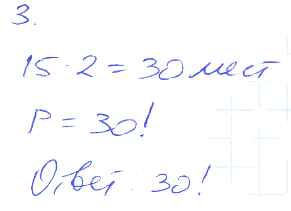 3.
15·2=30 мест
P=30!
Ответ: 30!